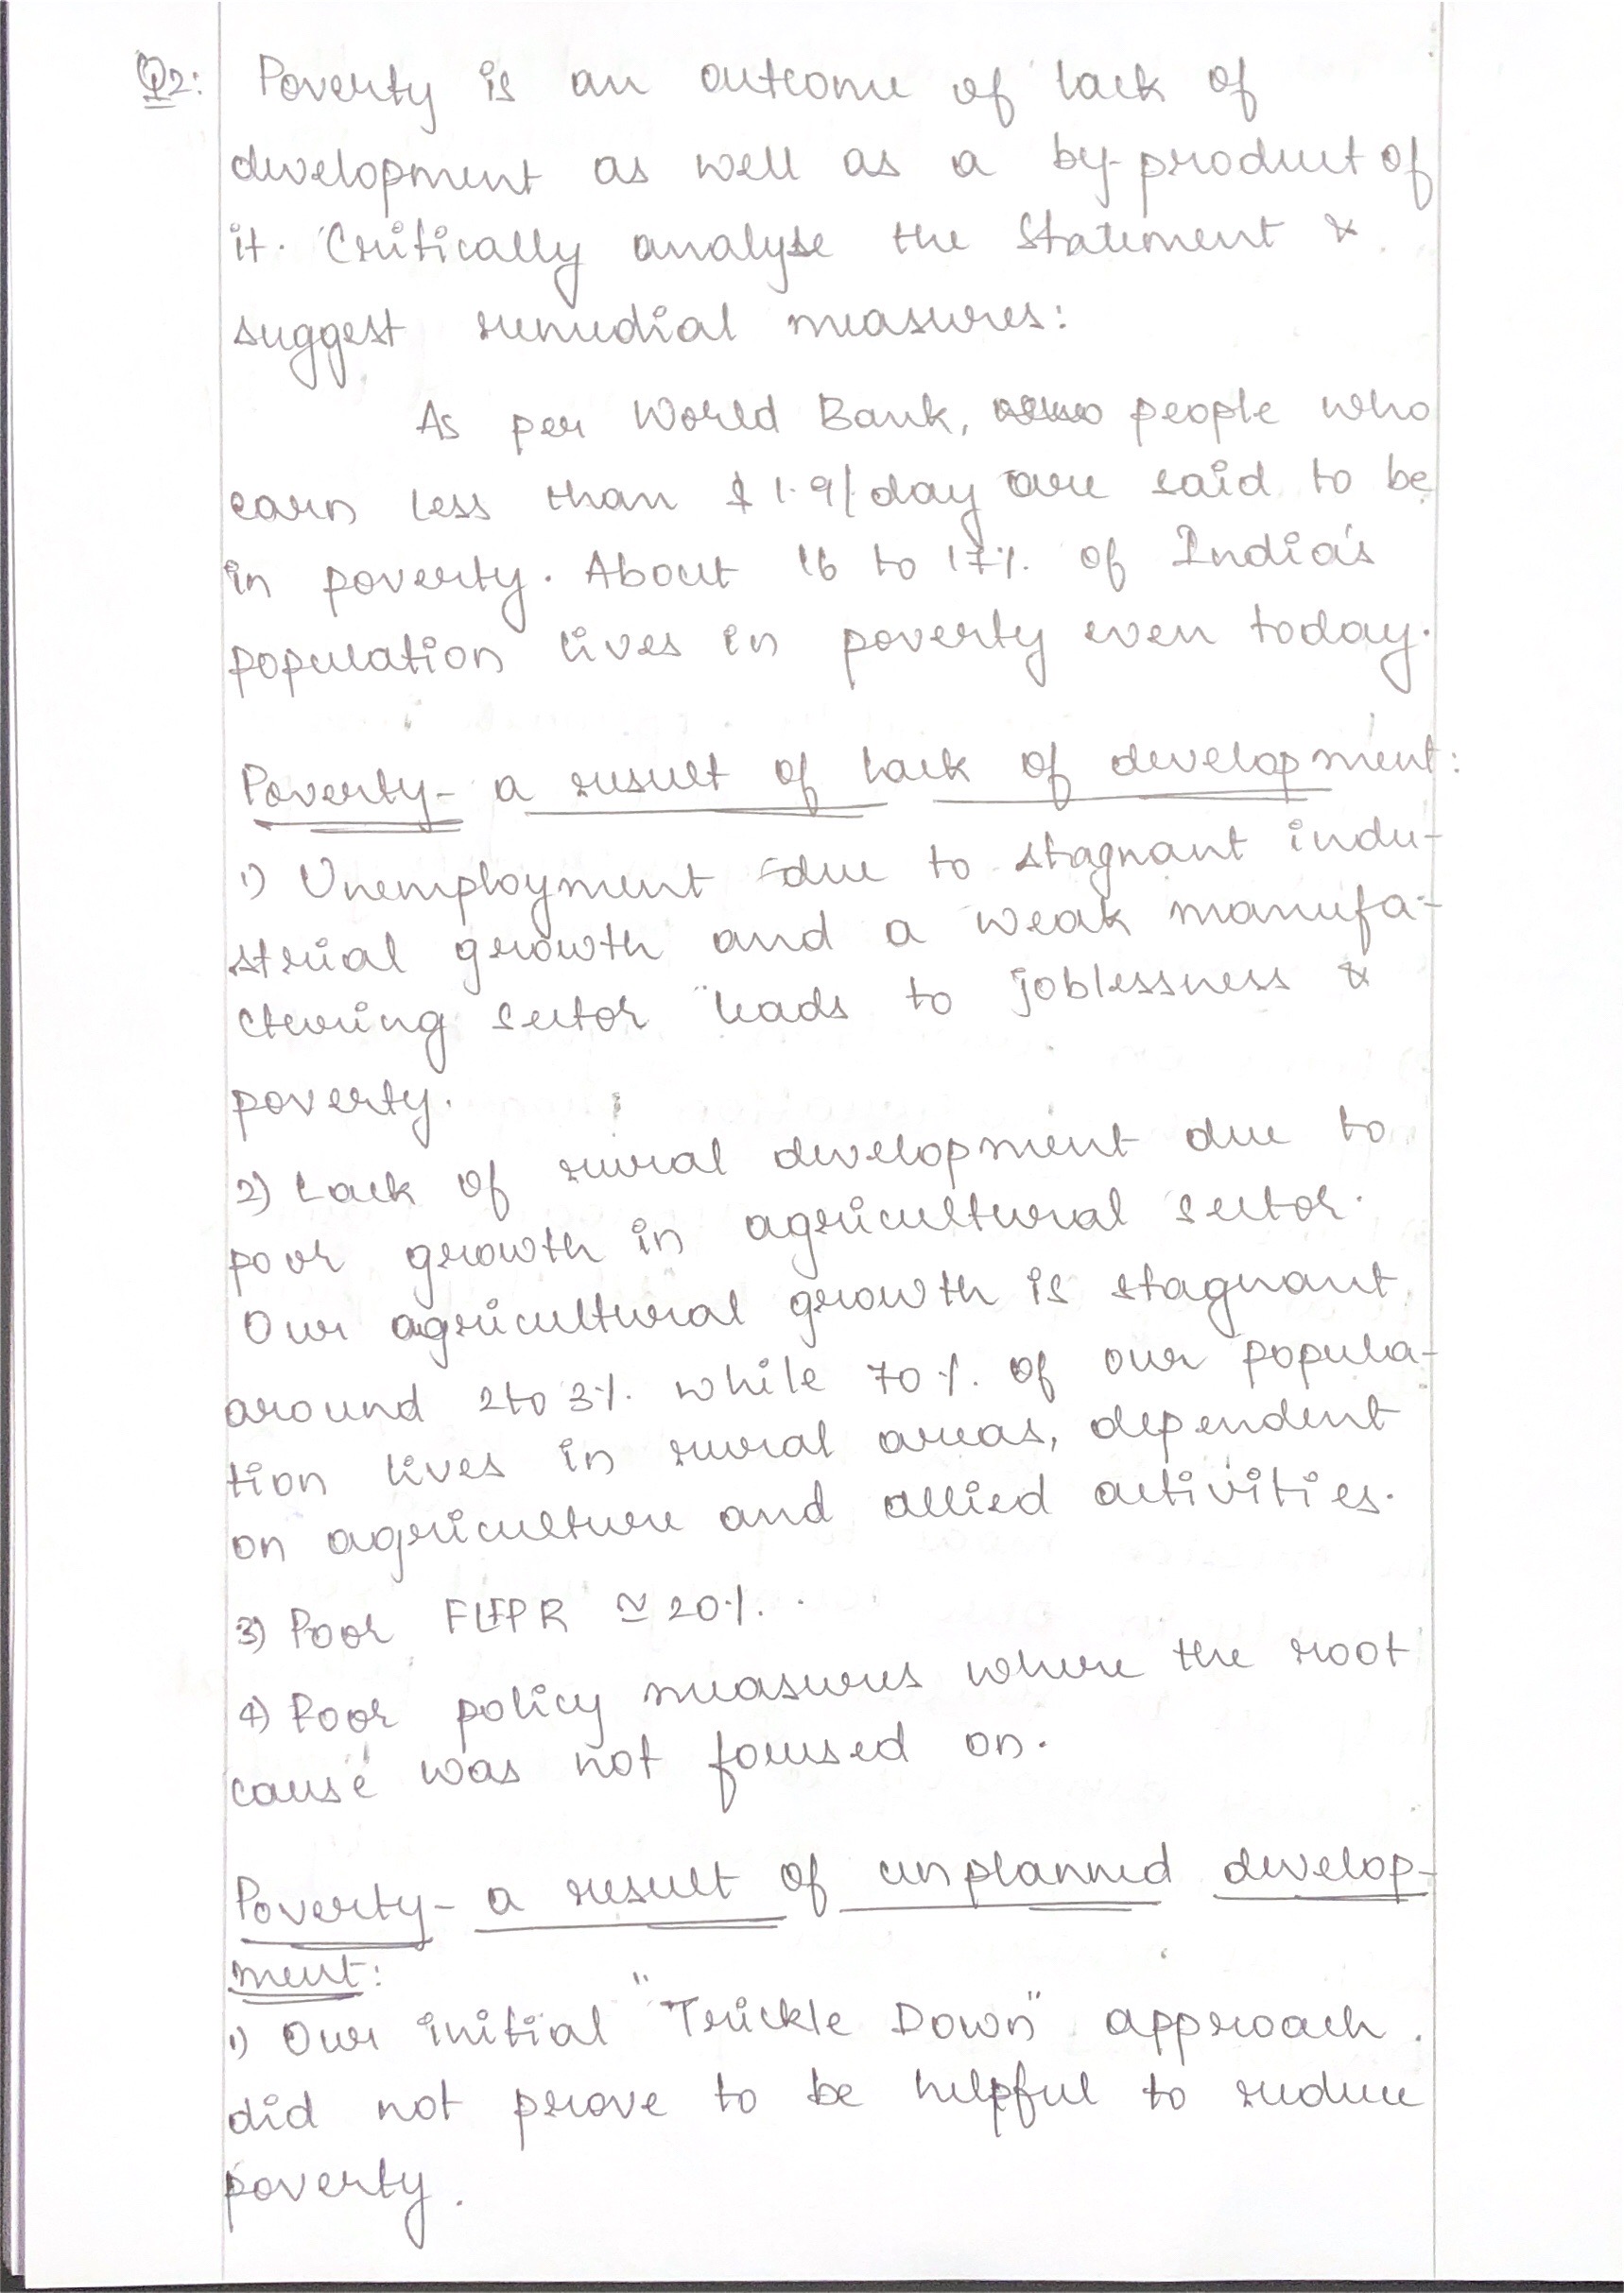 Q2: Poverty is an outcome of lack of
development as well as a by-product of
it. Critically analyse the statement &
suggest remedial measures:
As per World Bank, people who
earn less than $ 1.9/day are said to be
in poverty. About 16 to 17% of India's
population lives in poverty even today.
Poverty - a result of lack of development:
1) Unemployment due to stagnant indu-
strial growth and a weak manufa-
cturing sector leads to joblessness &
poverty.
2) Lack of rural development due to
poor growth in agricultural sector.
Our agricultural growth is stagnant
around 2 to 3% while 70% of our popula-
tion lives in rural areas, dependent
on agriculture and allied activities.
3) Poor FLFPR ≃ 20%.
4) Poor policy measures where the root
cause was not focused on.
Poverty - a result of unplanned develop-
ment:
1) Our initial "Trickle Down" approach
did not prove to be helpful to reduce
poverty.